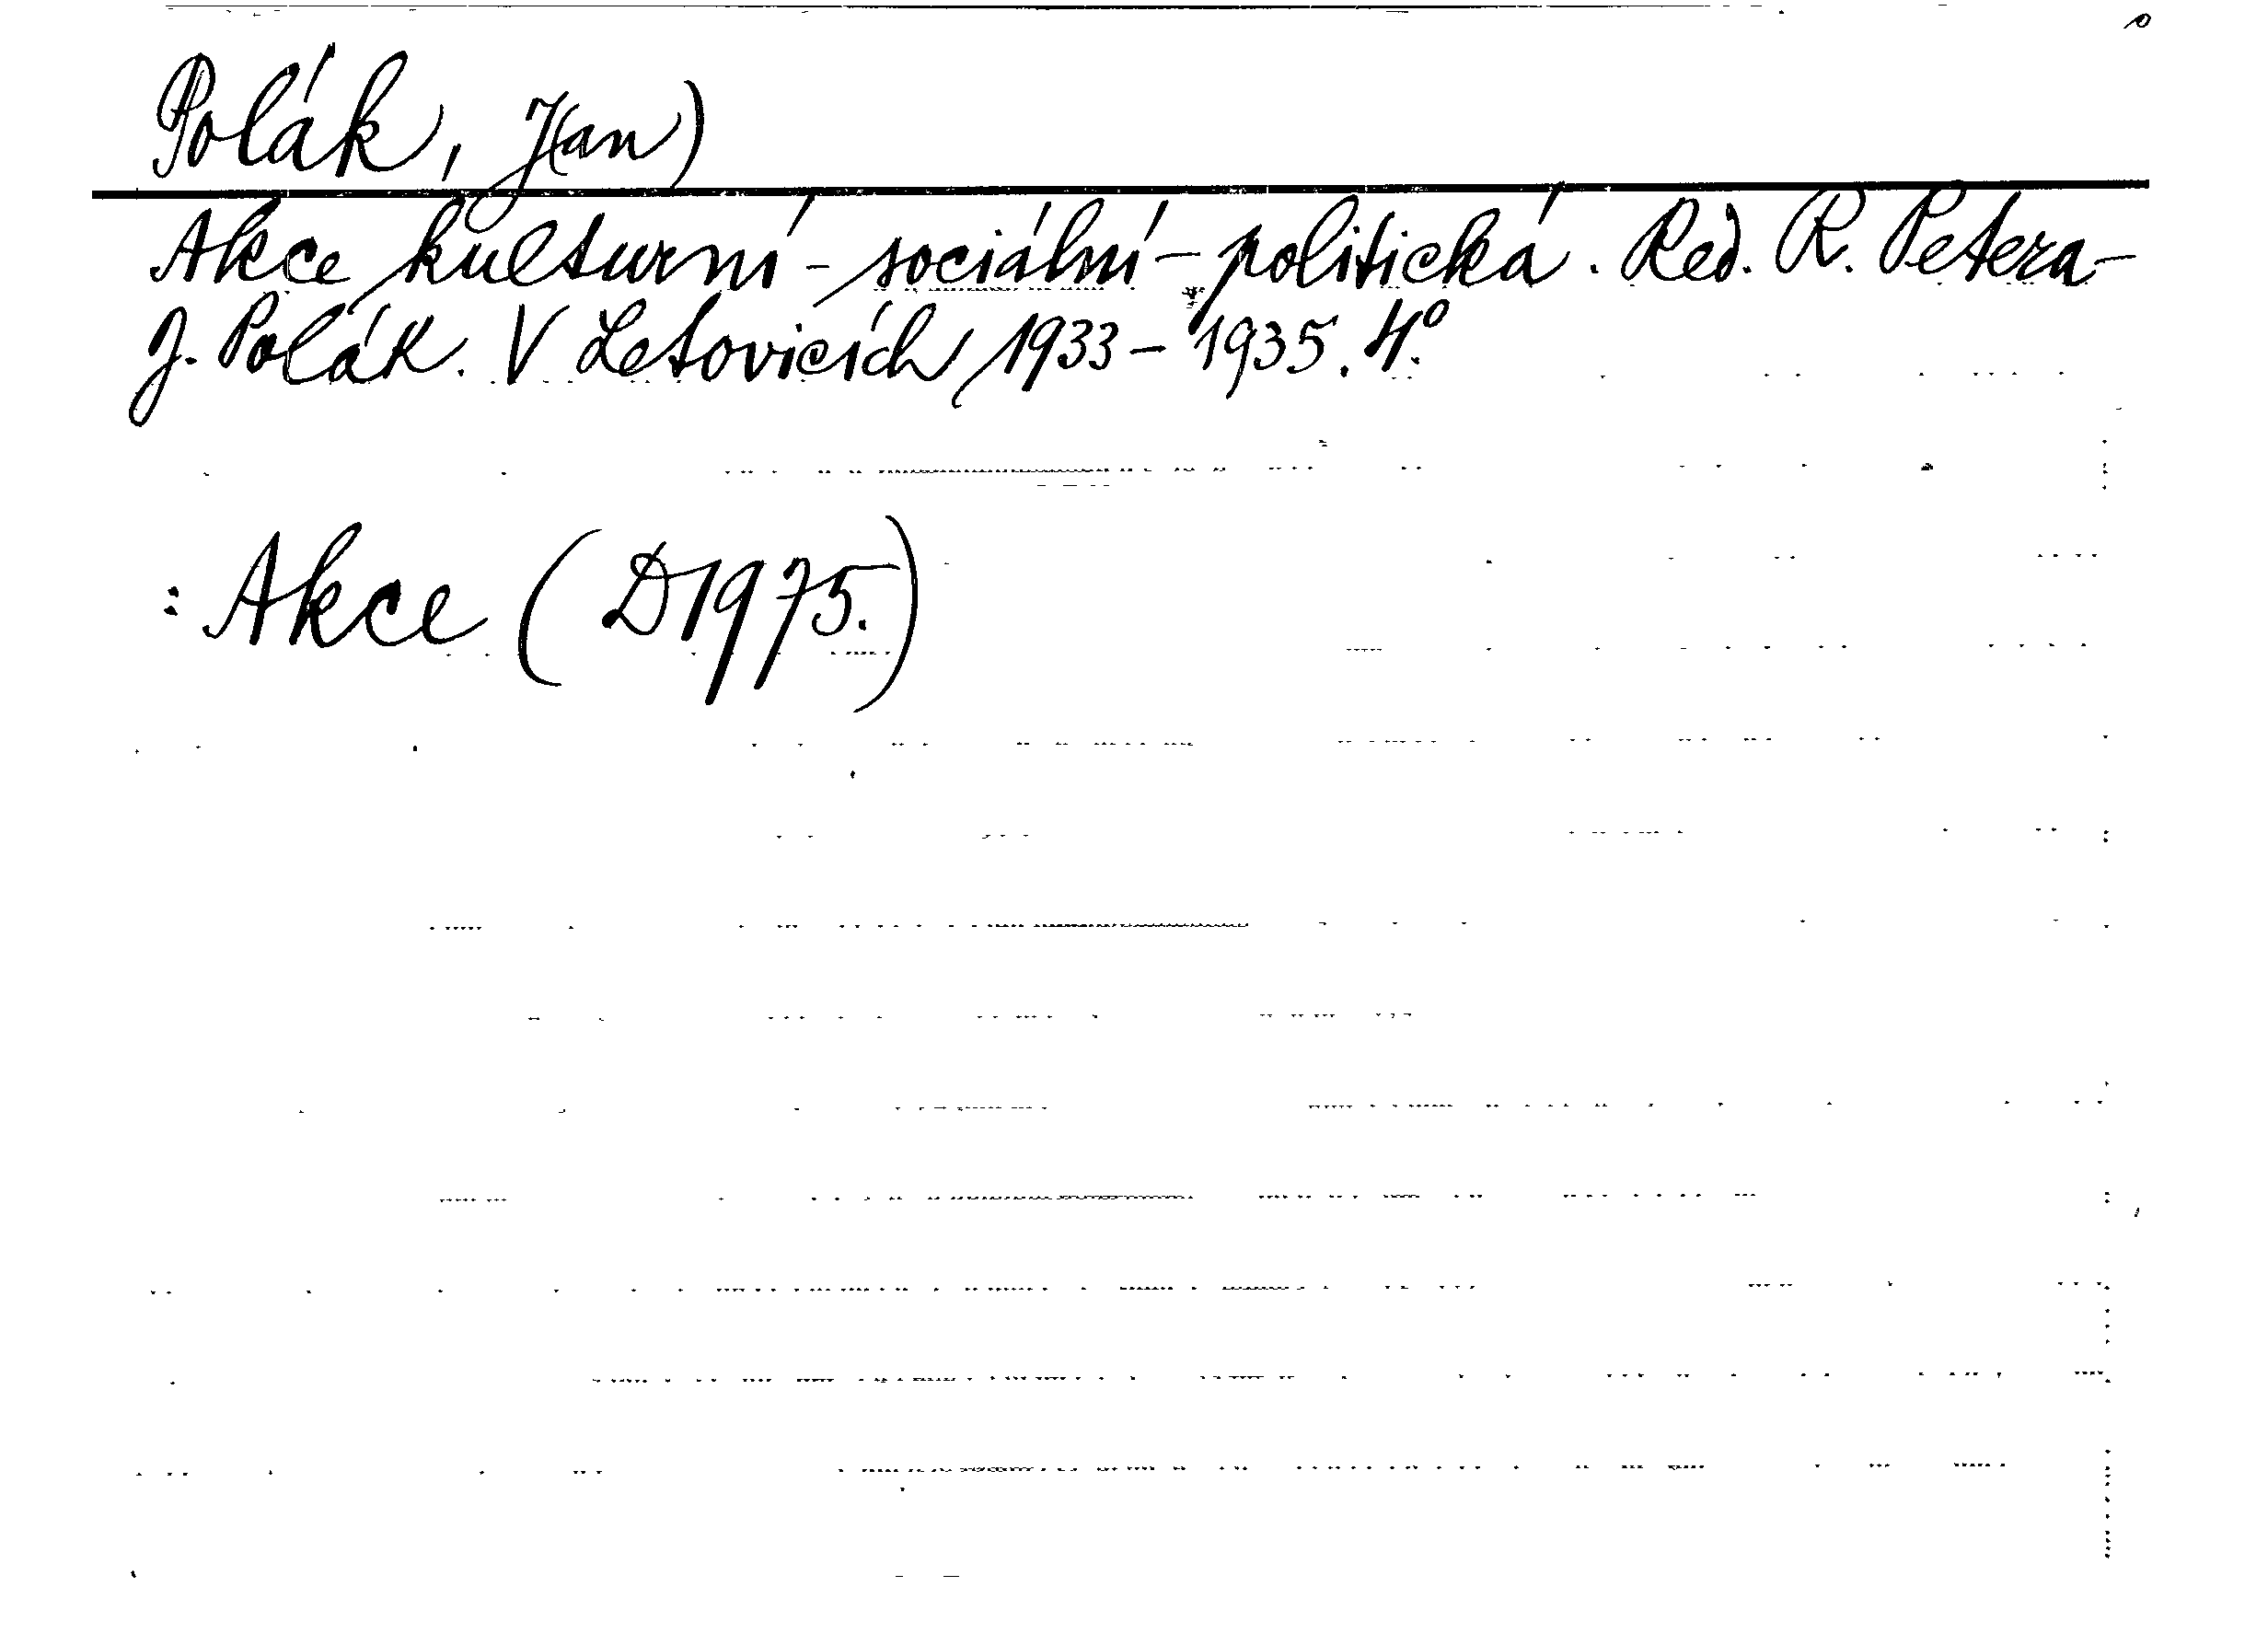 Polák, J(an)
Akce kulturní - sociální - politická. Red. R. Petera -
J. Polák. V Letovicích 1933 - 1935. 4°.
: Akce (D1975.)